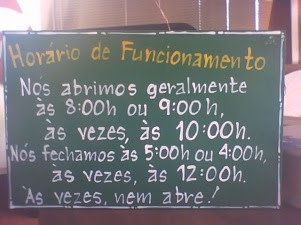 Horário de Funcionamento
Nós abrimos geralmente
às 8:00h ou 9:00h,
às vezes, às 10:00h.
Nós fechamos às 5:00h ou 4:00h,
às vezes, às 12:00h.
Às vezes, nem abre!